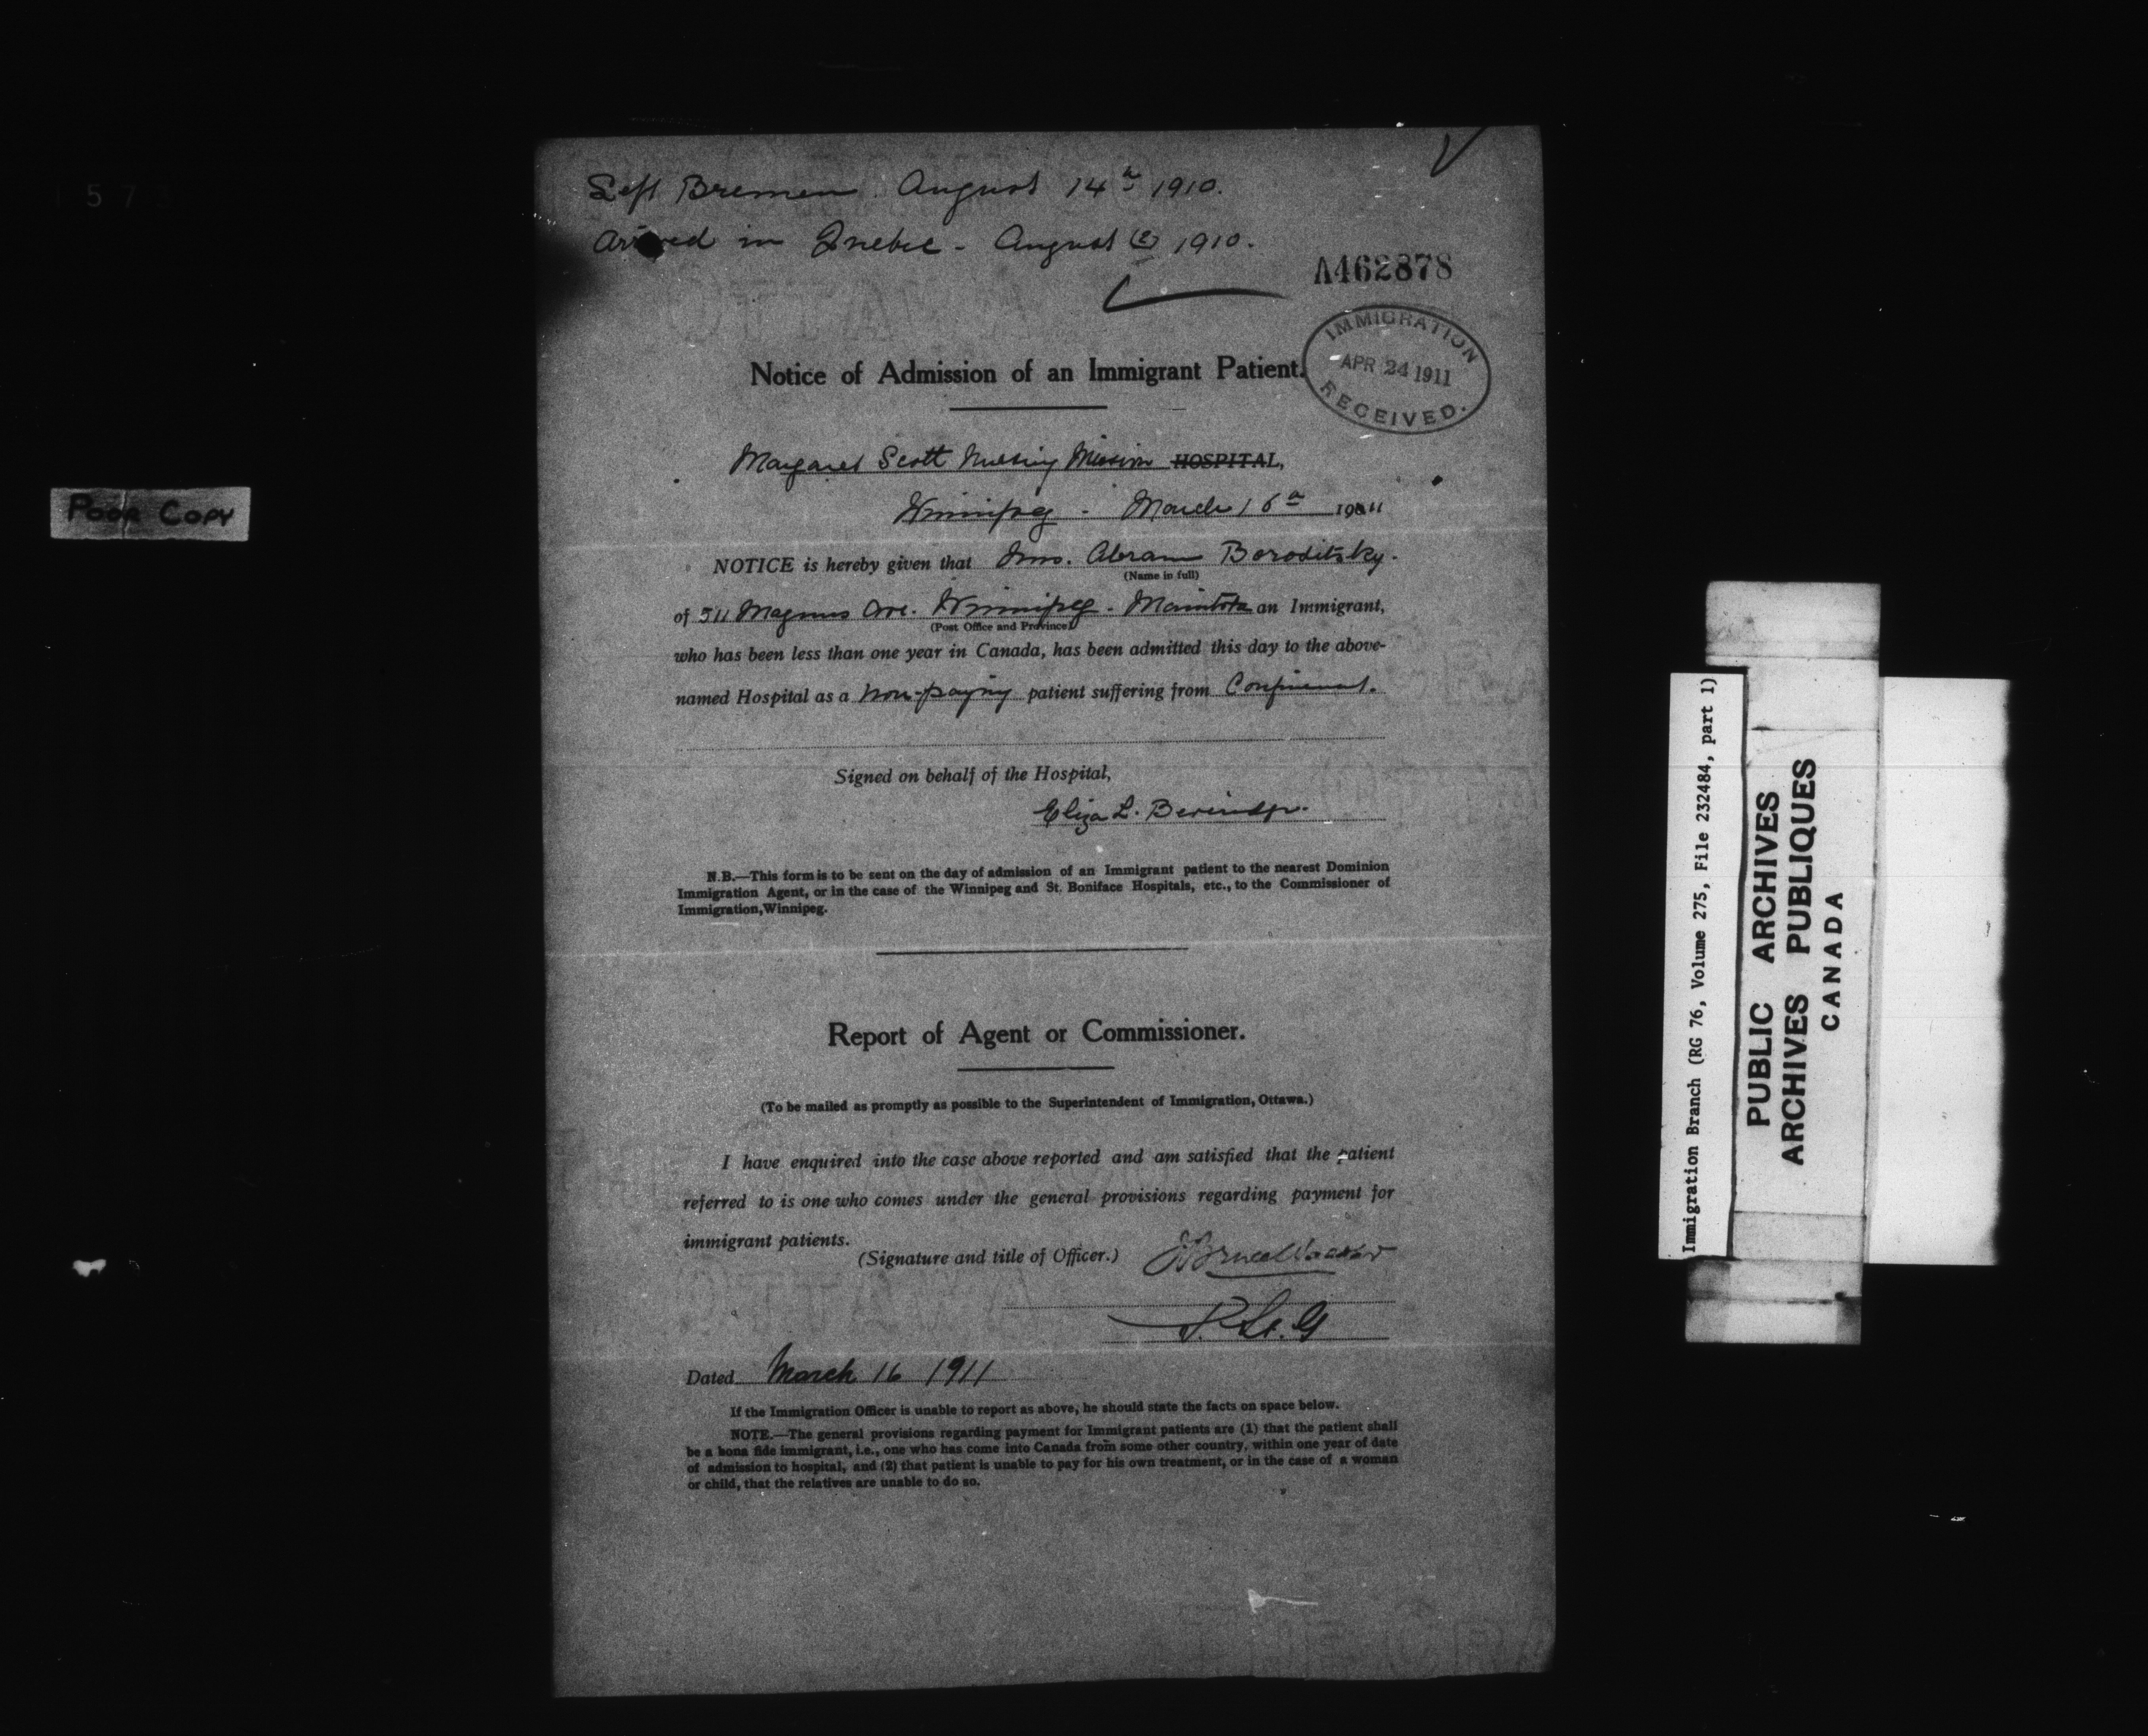 Left Bremen August 14th 1910.
Arrived in Quebec - August (2) 1910.
A462878
IMMIGRATION
APR 24 1911
RECEIVED.
Notice of Admission of an Immigrant Patient.
Margaret Scott Nursing Mission HOSPITAL,
Winnipeg - March 16th 1911
NOTICE is hereby given that Mrs. Abram Boroditsky.
(Name in full)
of 511 Magnus Ave. Winnipeg - Manitoba an Immigrant,
(Post Office and Province)
who has been less than one year in Canada, has been admitted this day to the above-
named Hospital as a non-paying patient suffering from Confinement.
Signed on behalf of the Hospital,
Eliza L.
N.B.—This form is to be sent on the day of admission of an Immigrant patient to the nearest Dominion
Immigration Agent, or in the case of the Winnipeg and St. Boniface Hospitals, etc., to the Commissioner of
Immigration, Winnipeg.
Report of Agent or Commissioner.
(To be mailed as promptly as possible to the Superintendent of Immigration, Ottawa.)
I have enquired into the case above reported and am satisfied that the patient
referred to is one who comes under the general provisions regarding payment for
immigrant patients.
(Signature and title of Officer.) J Bruce Walker
Dated March 16 1911
If the Immigration Officer is unable to report as above, he should state the facts on space below.
NOTE.—The general provisions regarding payment for Immigrant patients are (1) that the patient shall
be a bona fide immigrant, i.e., one who has come into Canada from some other country, within one year of date
of admission to hospital, and (2) that patient is unable to pay for his own treatment, or in the case of a woman
or child, that the relatives are unable to do so.
Poor Copy
Immigration Branch (RG 76, Volume 275, File 232484, part 1)
PUBLIC ARCHIVES
ARCHIVES PUBLIQUES
CANADA